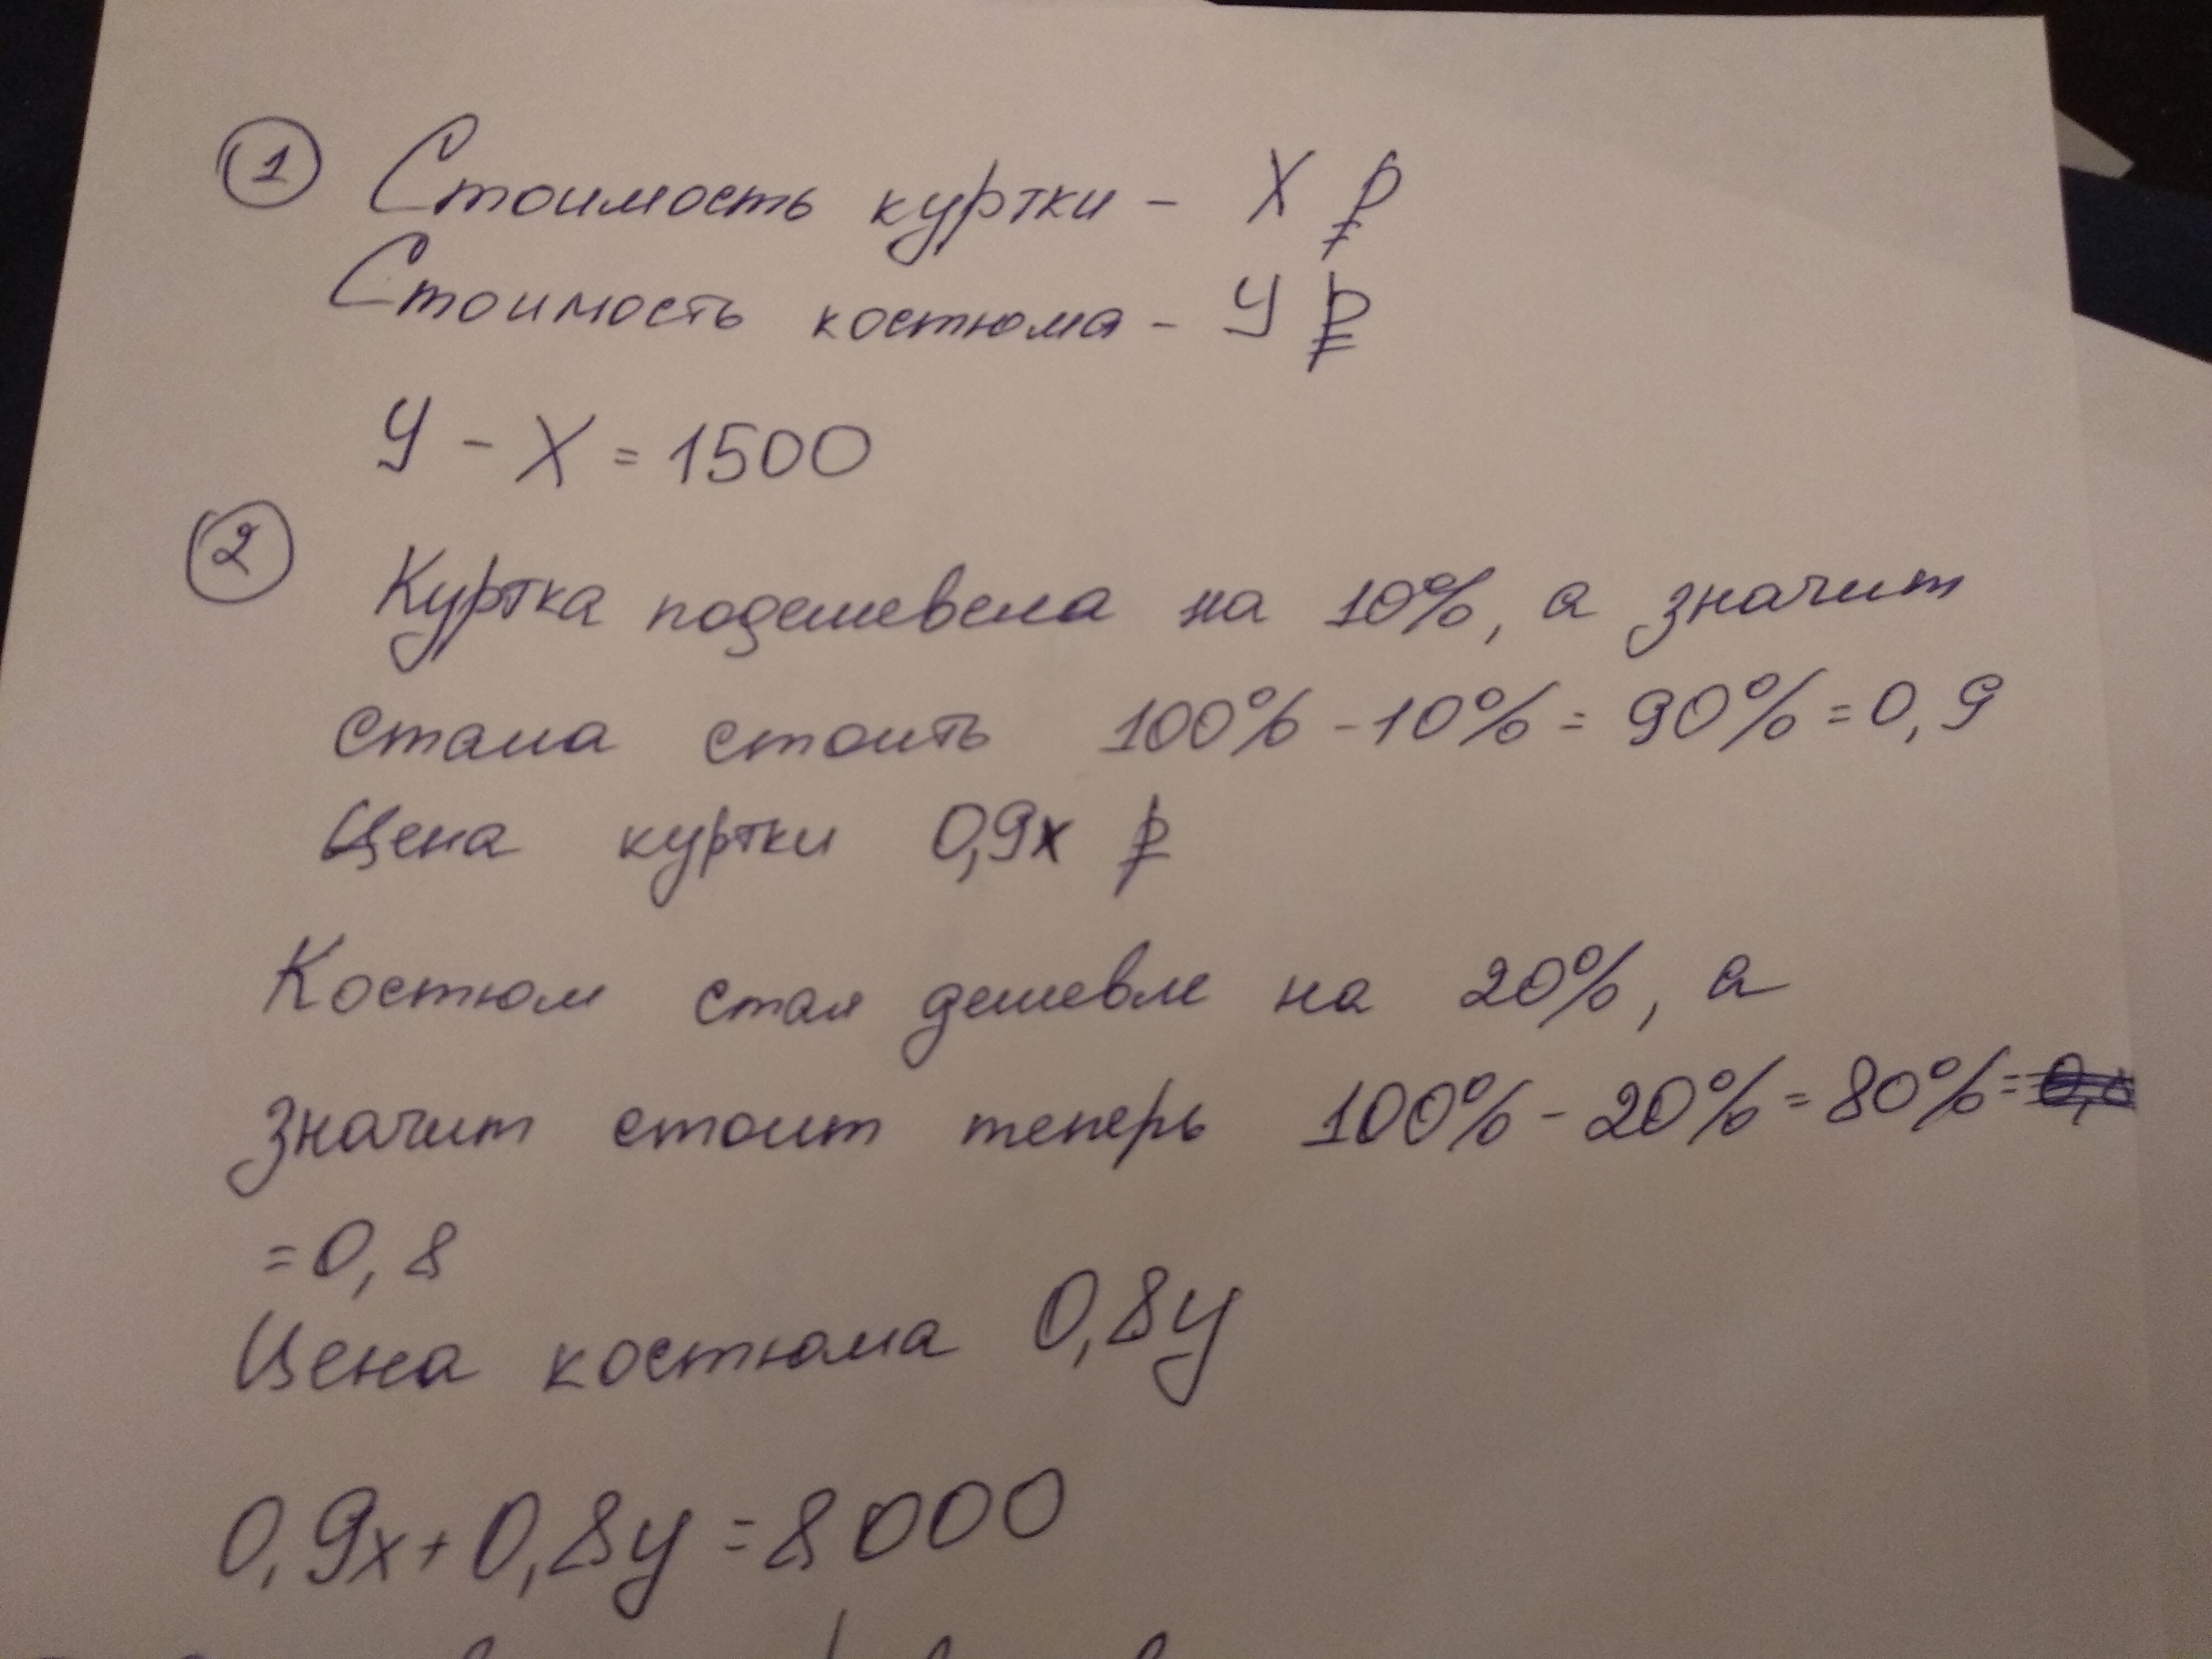 1 Стоимость куртки - X ₽
Стоимость костюма - У ₽
У - X = 1500
2
Куртка подешевела на 10%, а значит
стала стоить 100% - 10% = 90% = 0,9
Цена куртки 0,9x ₽
Костюм стал дешевле на 20%, а
значит стоит теперь 100% - 20% = 80% =
= 0,8
Цена костюма 0,8y
0,9x + 0,8y = 8000